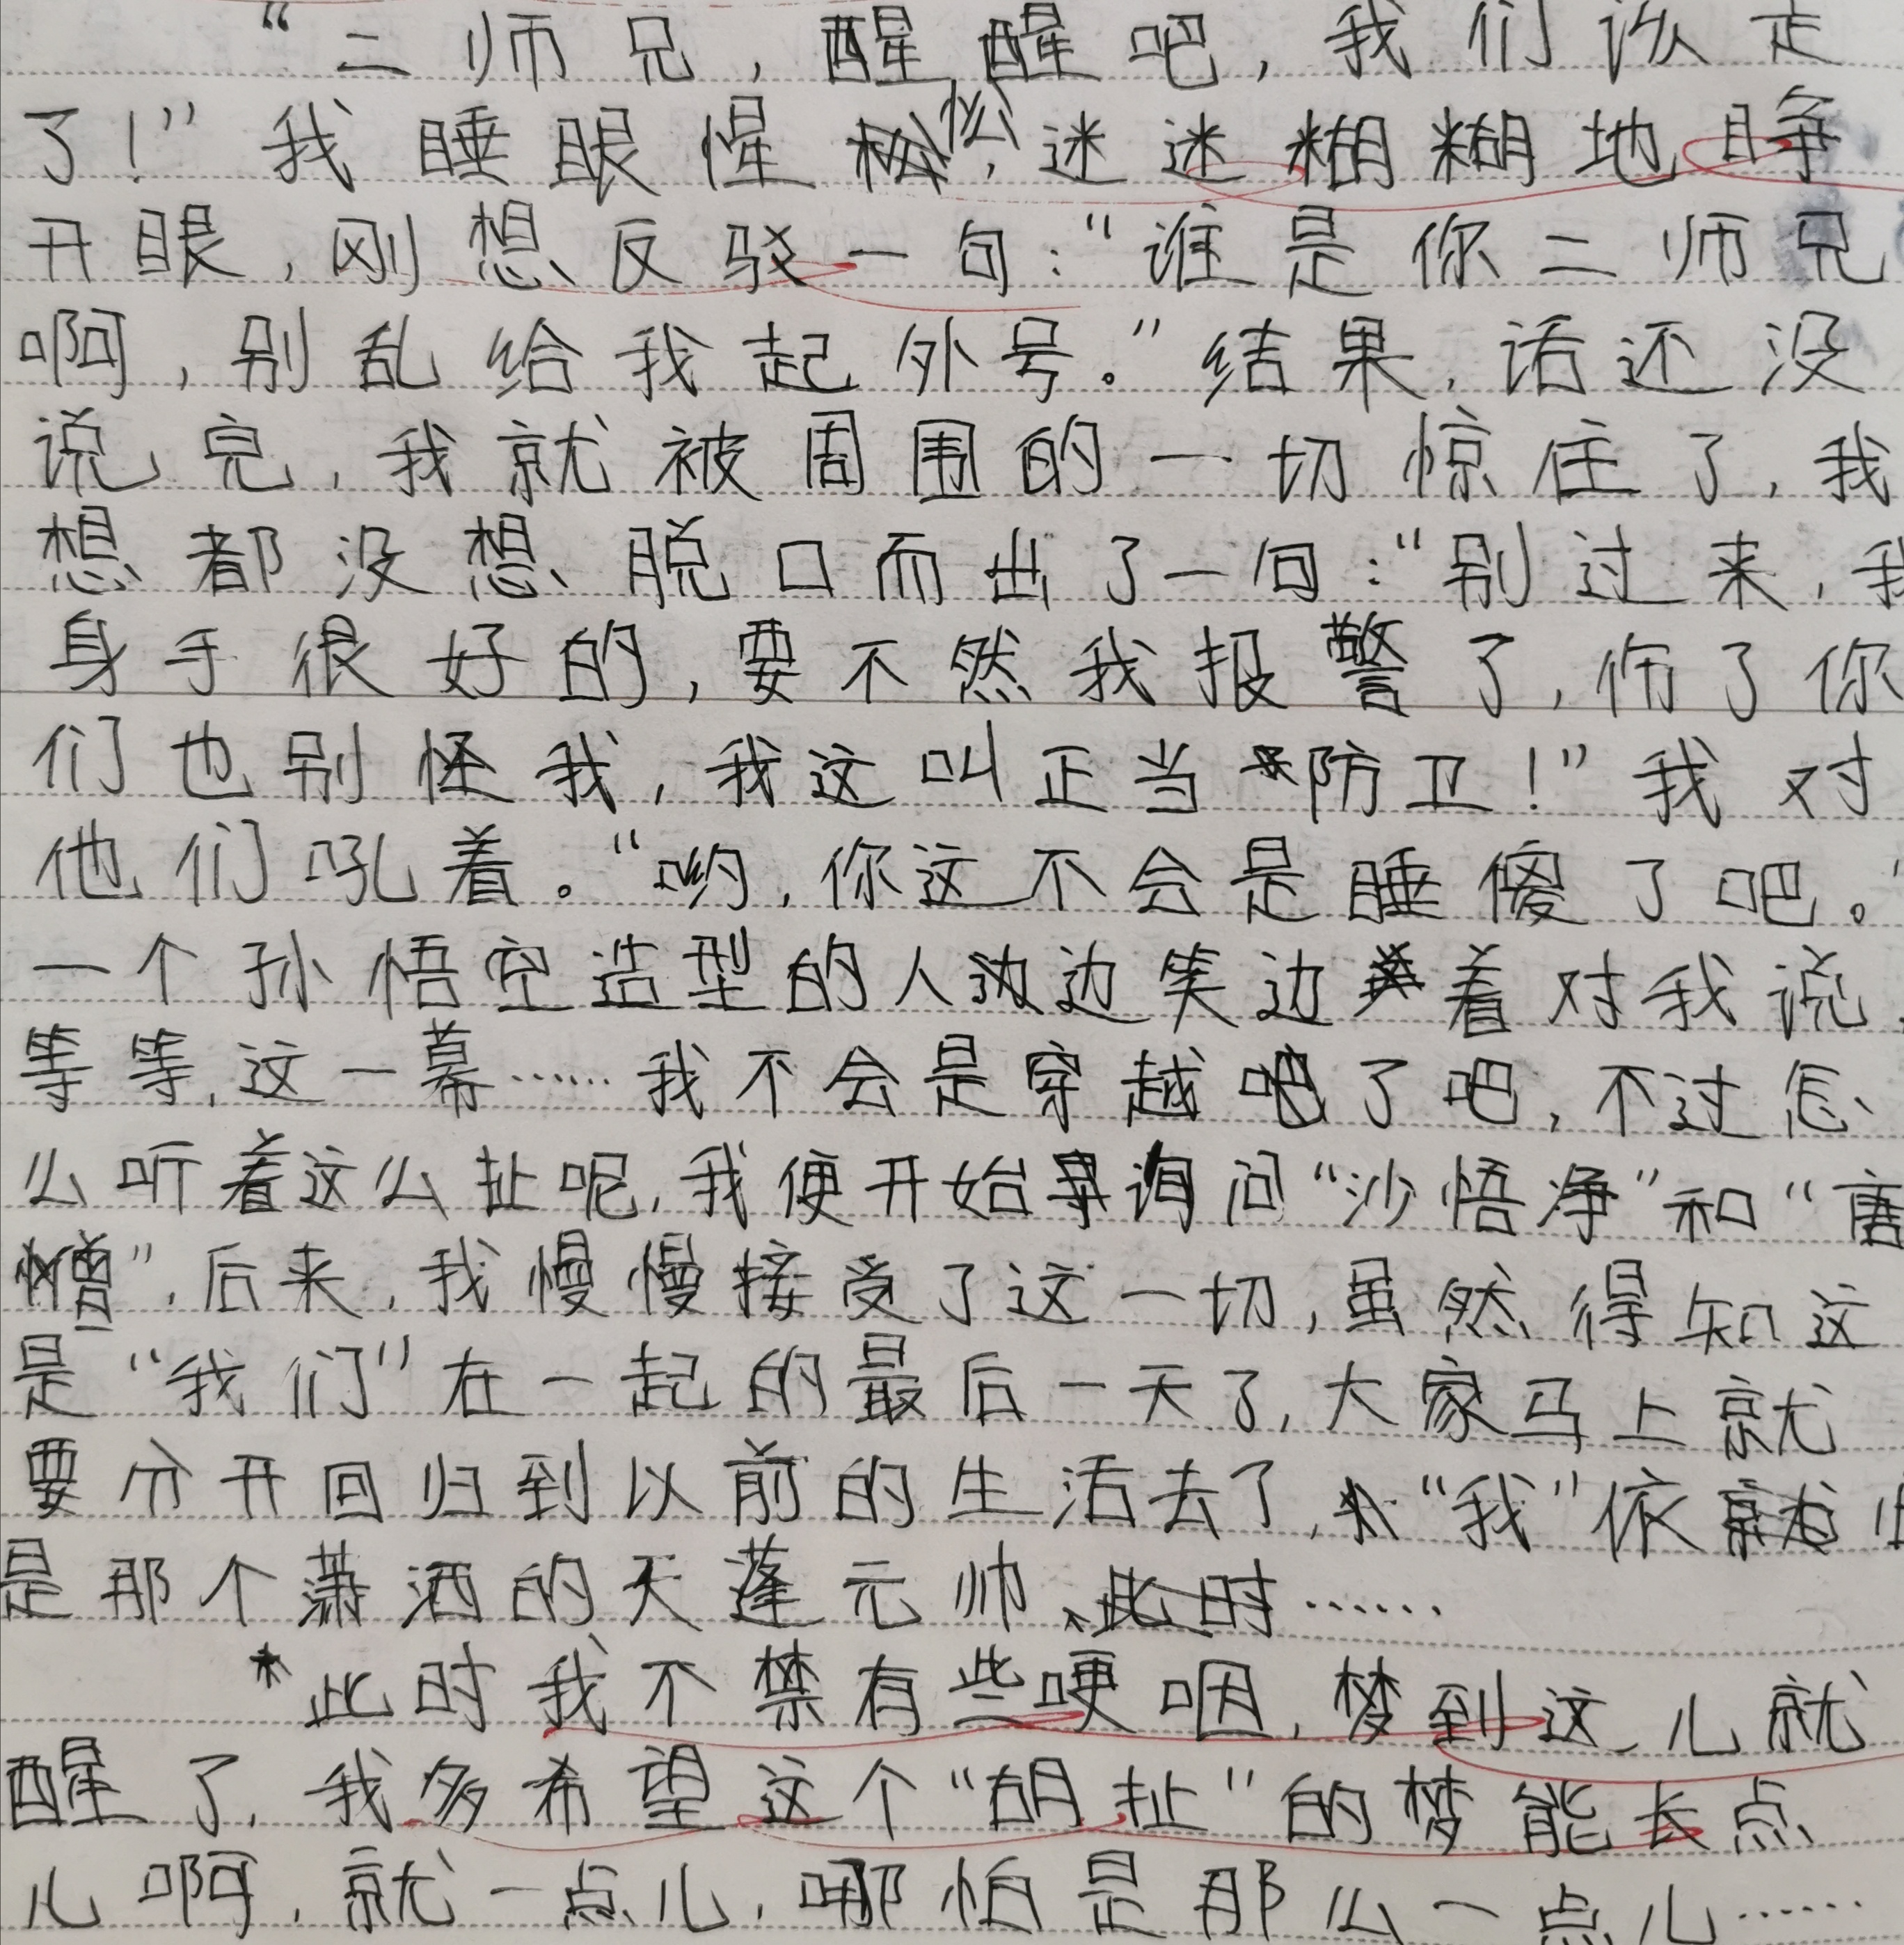 “二师兄，醒醒吧，我们该走
了！”我睡眼惺忪，迷迷糊糊地睁
开眼，刚想反驳一句：“谁是你二师兄
啊，别乱给我起外号。”结果，话还没
说完，我就被周围的一切惊住了，我
想都没想脱口而出了一句：“别过来，我
身手很好的，要不然我报警了，伤了你
们也别怪我，我这叫正当防卫！”我对
他们吼着。“哟，你这不会是睡傻了吧。”
一个孙悟空造型的人边笑边着对我说.
等等，这一幕……我不会是穿越了吧，不过怎
么听着这么扯呢，我便开始询问“沙悟净”和“唐
僧”，后来，我慢慢接受了这一切，虽然得知这
是“我们”在一起的最后一天了，大家马上就
要分开回归到以前的生活去了，“我”依旧
是那个潇洒的天蓬元帅、此时……
此时我不禁有些哽咽，梦到这儿就
醒了，我多希望这个“胡扯”的梦能长点
儿啊，就一点儿，哪怕是那么一点儿……